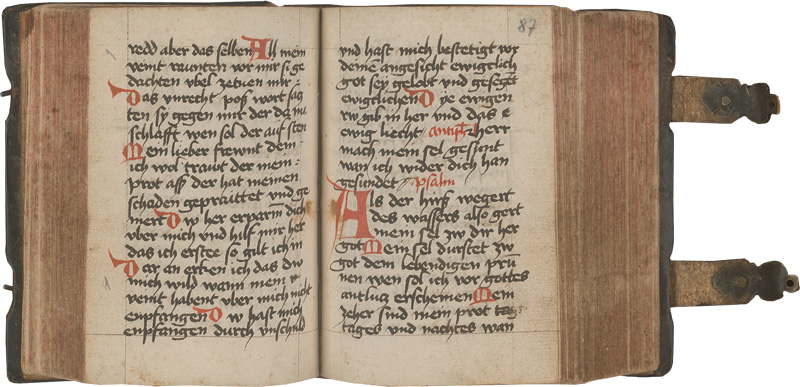 redd aber das selben All mein
veint raunten vor mir si ge
dachten vbel zetuen mir :
Das vnrecht poß wort sag
ten sy gegen mir der da nu
schlafft wen sol der auf sten
Mein lieber frewnt dem
ich wol trawt der mein :
prot aß der hat meinen
schaden gepraittet vnd ge
mert Dw her erparm dich
vber mich vnd hilf mir her
das ich erstee so gilt ich in
Dar an erken ich das dw
mich wild wann mein
veint habent vber mich nicht
enpfangen Dw hast mich
enpfangen durch vnschuld
87
vnd hast mich bestetigt vor
deinē angesicht ewigclich
got sey gelobt vnd geseget
ewigclichen Dye ewigen
rw gib in her vnd das e
ewig liecht antiph her
mach mein sel gesunt
wan ich wider dich han
gesundet psalm
Als der hirß wegert
des wassers also gert
mein sel zw dir her
got Mein sel durstet zw
got dem lebendigen prū
nen wen sol ich vor gottes
antlutz erscheinen Mein
zeher sind mein prot
tages vnd nachtes wan